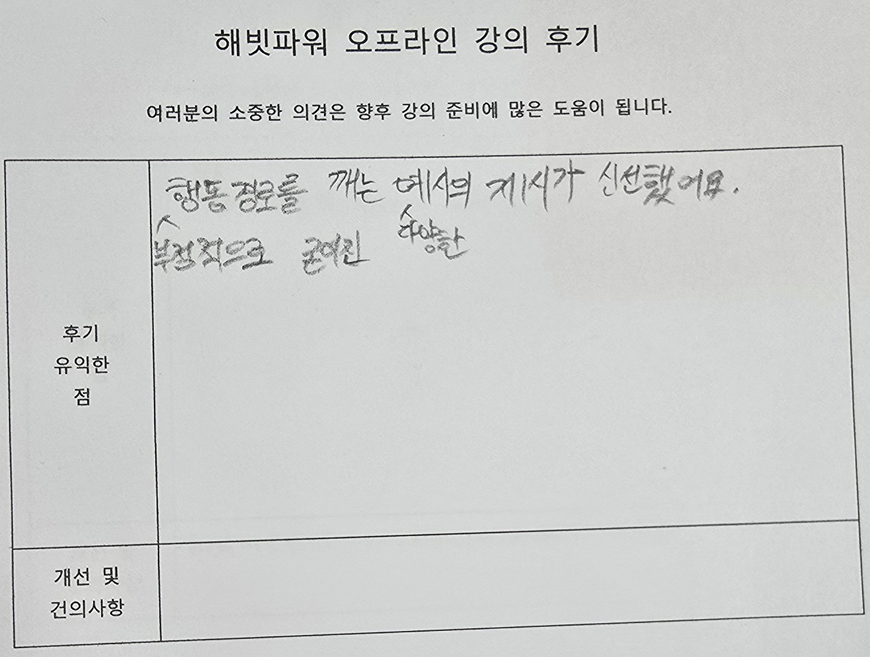 해빗파워 오프라인 강의 후기
여러분의 소중한 의견은 향후 강의 준비에 많은 도움이 됩니다.
후기
유익한
점
행동 경로를 깨는 예시의 제시가 신선했어요.
부정적으로 굳어진 다양한
개선 및
건의사항